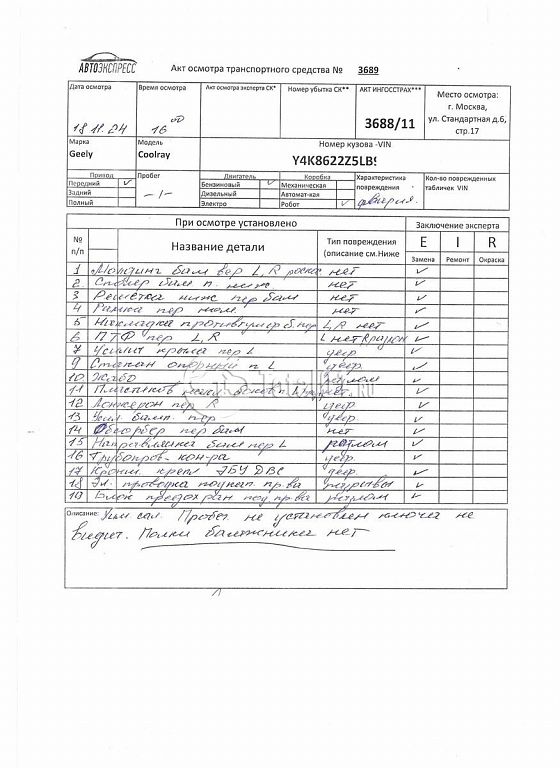 АВТОЭКСПРЕСС
Акт осмотра транспортного средства № 3689
Дата осмотра Время осмотра Акт осмотра эксперта СК* Номер убытка СК** АКТ ИНГОССТРАХ*** Место осмотра:
г. Москва,
18.11.24 16 00 3688/11 ул. Стандартная д.6,
стр.17
Марка Модель Номер кузова -VIN
Geely Coolray Y4K8622Z5LB9
Привод Пробег Двигатель Коробка Характеристика повреждения Кол-во поврежденных табличек VIN
Передний ✓ Бензиновый ✓ Механическая
Задний -/- Дизельный Автомат-кая
Полный Электро Робот ✓ фварія.
При осмотре установлено Заключение эксперта
№ п/п Название детали Тип повреждения (описание см.Ниже E I R
Замена Ремонт Окраска
1 Молдинг бам вер L,R нет ✓
2 Спойлер бам п. ниж. нет ✓
3 Решетка ниж пер бам нет ✓
4 Рамка пер ном. нет ✓
5 Накладка противотум ф. пер L,R нет ✓
6 ПТФ пер L,R L нет R ✓
7 Усилит крыла пер L деф. ✓
9 Стакан опорный п L деф. ✓
10 Жабо разлом ✓
11 Пластиков ✓
12 Лонжерон пер R деф. ✓
13 Усил. бамп. пер деф. ✓
14 Абсорбер пер бам нет ✓
15 Направляющая бам пер L разлом ✓
16 Трубопров. кон-ра деф. ✓
17 Кронш. креп ЭБУ ДВС деф. ✓
18 Эл. проводка подкап. пр-ва разрывы ✓
10 Блок предохран под. пр-ва разлом ✓
Описание: Уч. сал. Пробег не установлен ключа не
видит. Полки багажника нет